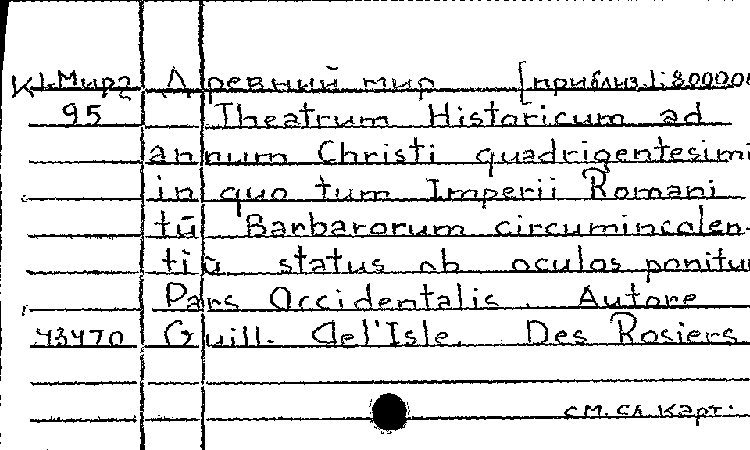 К.1.Мира Древний мир [приблиз.1:8000.00
95 Theatrum Historicum ad
annum Christi quadrigentesimi
in quo tum Imperii Romani
tū Barbarorum circumincolen-
tiū status ob oculos ponitu
Pars Occidentalis. Autore
43470 Guill. del'Isle. Des Rosiers
см. сл. карт.